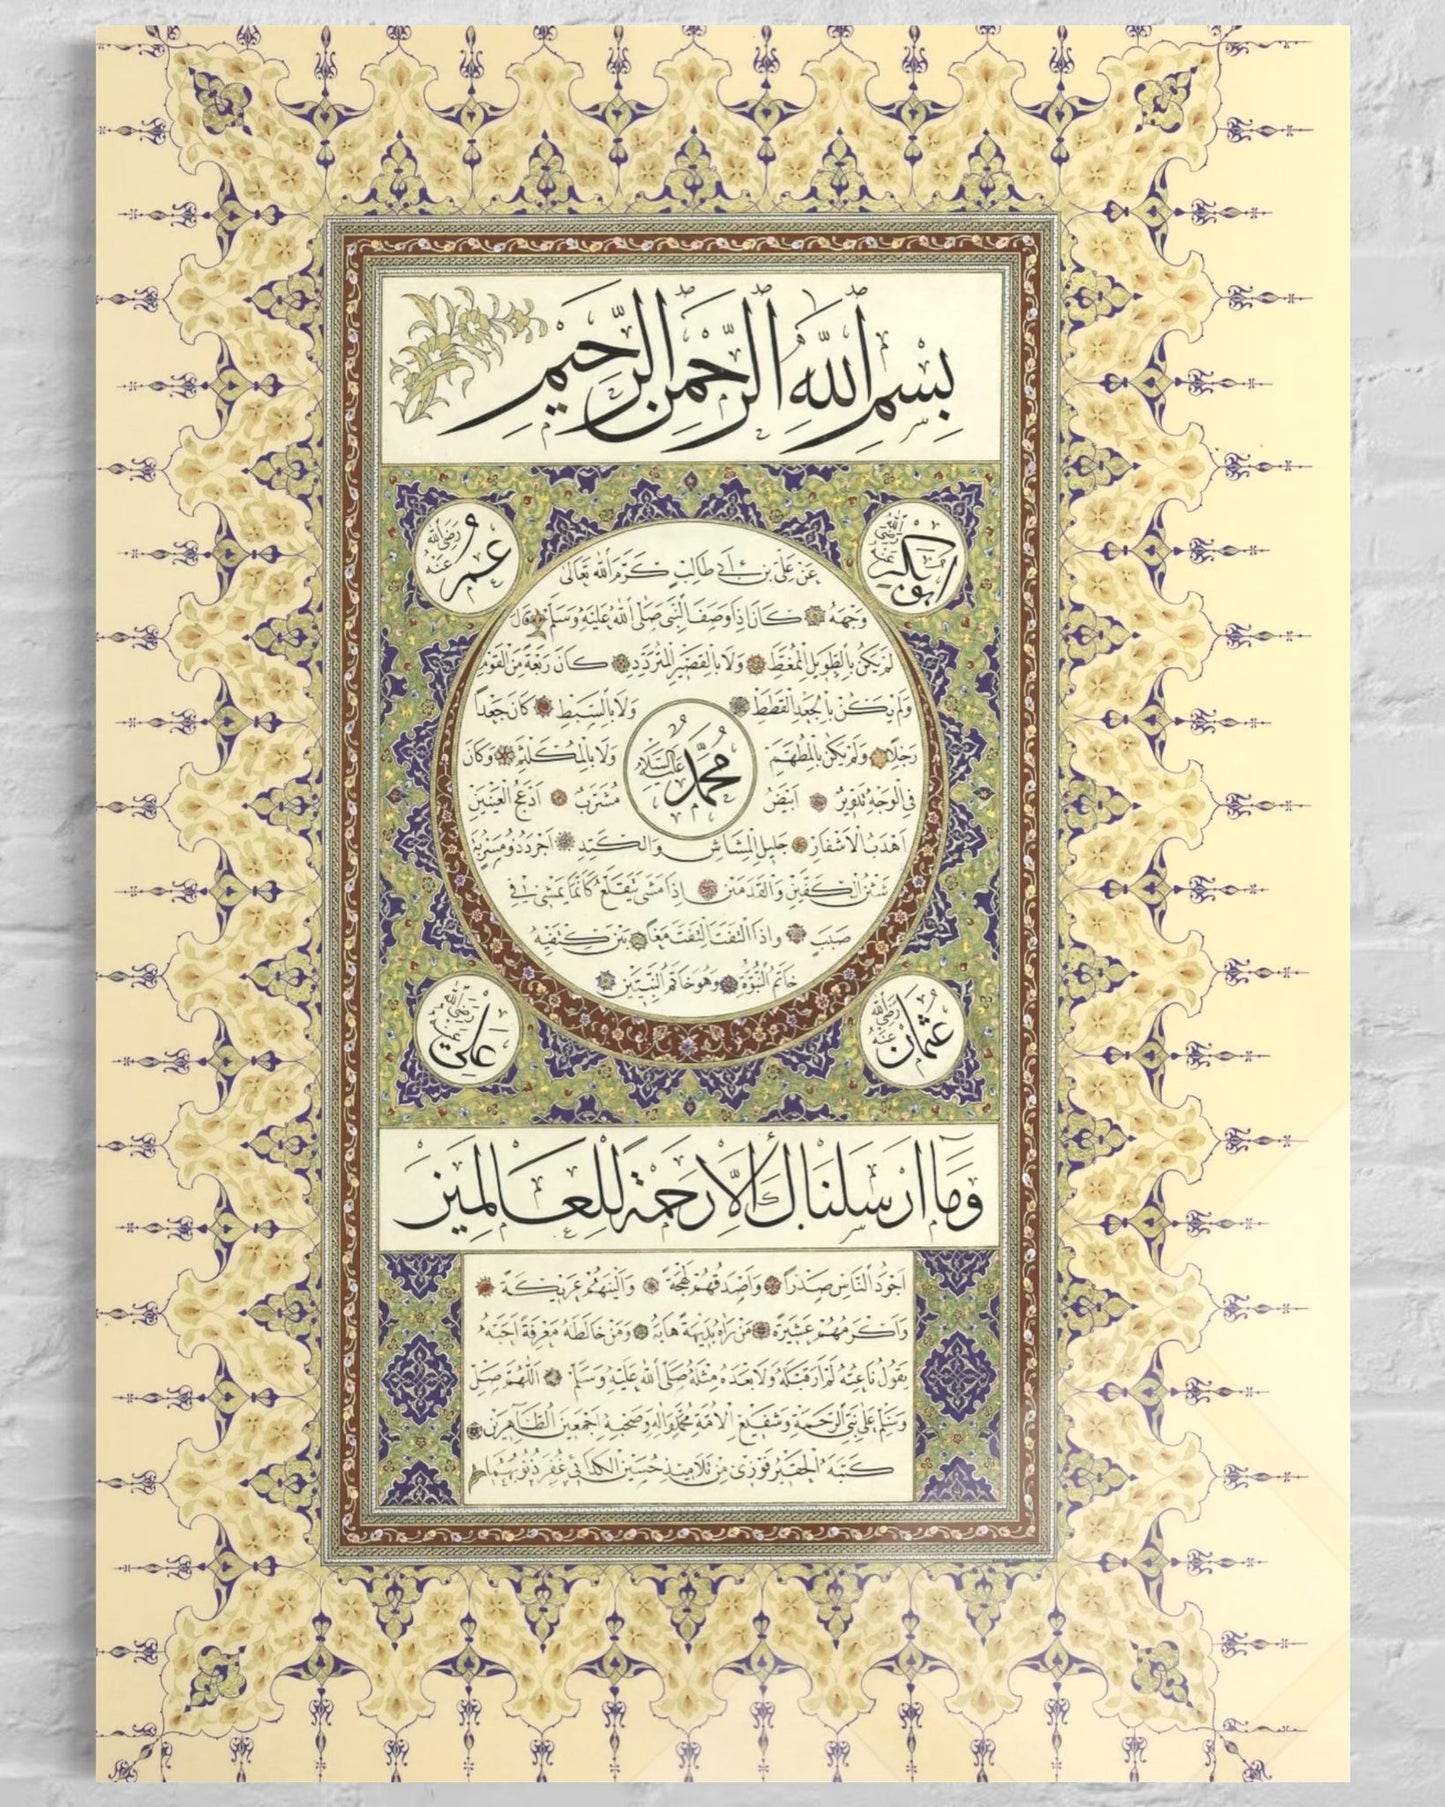 بِسْمِ اللهِ الرَّحْمٰنِ الرَّحِيمِ
ابو بكر رضي الله عنه
عمر رَضِيَ الله عَنْهُ
عَنْ عَلِيِّ بْنِ أَبِي طَالِبٍ كَرَّمَ اللهُ تَعَالَى
وَجْهَهُ كَانَ اِذَا وَصَفَ النَّبِيَّ صَلَّى اللهُ عَلَيْهِ وَسَلَّمَ قَالَ
لَمْ يَكُنْ بِالطَّوِيلِ الْمُمَغَّطِ وَلَا بِالْقَصِيرِ الْمُتَرَدِّدِ كَانَ رَبْعَةً مِنَ الْقَوْمِ
وَلَمْ يَكُنْ بِالْجَعْدِ الْقَطَطِ وَلَا بِالسَّبِطِ كَانَ جَعْدًا
رَجِلًا وَلَمْ يَكُنْ بِالْمُطَهَّمِ وَلَا بِالْمُكَلْثَمِ وَكَانَ
مُحَمَّد عَلَيْهِ السَّلَام
فِي الْوَجْهِ تَدْوِيرٌ اَبْيَضُ مُشْرَبٌ اَدْعَجُ الْعَيْنَيْنِ
اَهْدَبُ الْاَشْفَارِ جَلِيلُ الْمُشَاشِ وَالْكَتَدِ اَجْرَدُ ذُو مَسْرُبَةٍ
شَثْنُ الْكَفَّيْنِ وَالْقَدَمَيْنِ اِذَا مَشَى يَتَقَلَّعُ كَاَنَّمَا يَمْشِي فِي
صَبَبٍ وَاِذَا الْتَفَتَ الْتَفَتَ مَعًا بَيْنَ كَتِفَيْهِ
خَاتَمُ النُّبُوَّةِ وَهُوَ خَاتَمُ النَّبِيِّينَ
عُثْمَان رَضِيَ الله عَنْهُ
عَلِي رَضِيَ الله عَنْهُ
وَمَا اَرْسَلْنَاكَ اِلَّا رَحْمَةً لِلْعَالَمِينَ
اَجْوَدُ النَّاسِ صَدْرًا وَاَصْدَقُهُمْ لَهْجَةً وَاَلْيَنُهُمْ عَرِيكَةً
وَاَكْرَمُهُمْ عَشِيرَةً مَنْ رَاٰهُ بَدِيهَةً هَابَهُ وَمَنْ خَالَطَهُ مَعْرِفَةً اَحَبَّهُ
يَقُولُ نَاعِتُهُ لَمْ اَرَ قَبْلَهُ وَلَا بَعْدَهُ مِثْلَهُ صَلَّى اللهُ عَلَيْهِ وَسَلَّمَ اَللّٰهُمَّ صَلِّ
وَسَلِّمْ عَلَى نَبِيِّ الرَّحْمَةِ وَشَفِيعِ الْاُمَّةِ مُحَمَّدٍ وَاٰلِهِ وَصَحْبِهِ اَجْمَعِينَ الطَّاهِرِينَ
كَتَبَهُ الْحَقِيرُ فَوْزِي مِنْ تَلَامِيذِ حُسَيْن غُفِرَ ذُنُوبُهُمَا